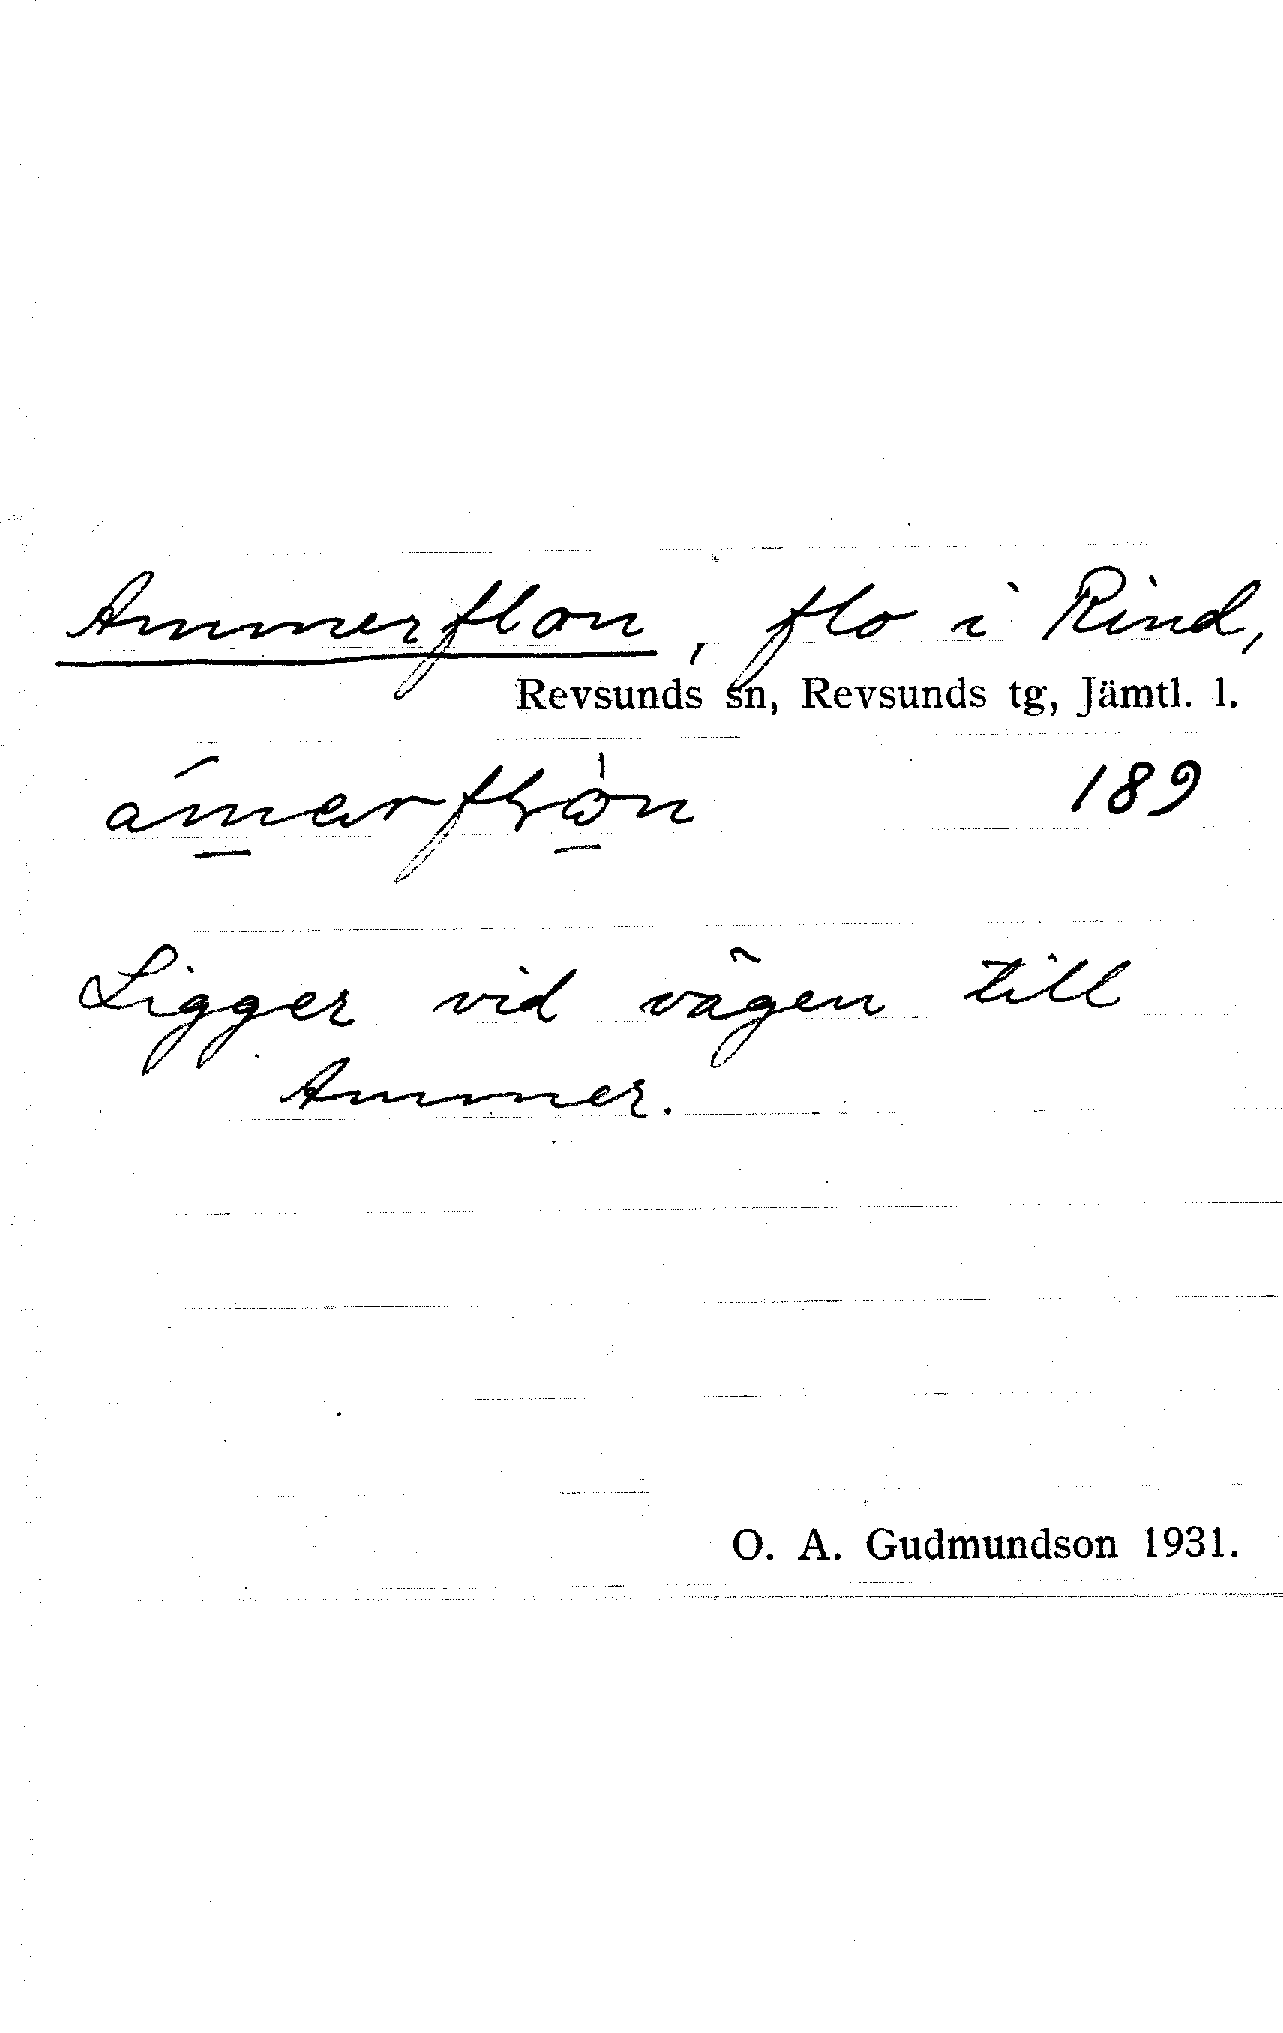 Ammerflon, flo i Rind,
Revsunds sn, Revsunds tg, Jämtl. l.
189
Ligger vid vägen till
Ammer.
O. A. Gudmundson 1931.